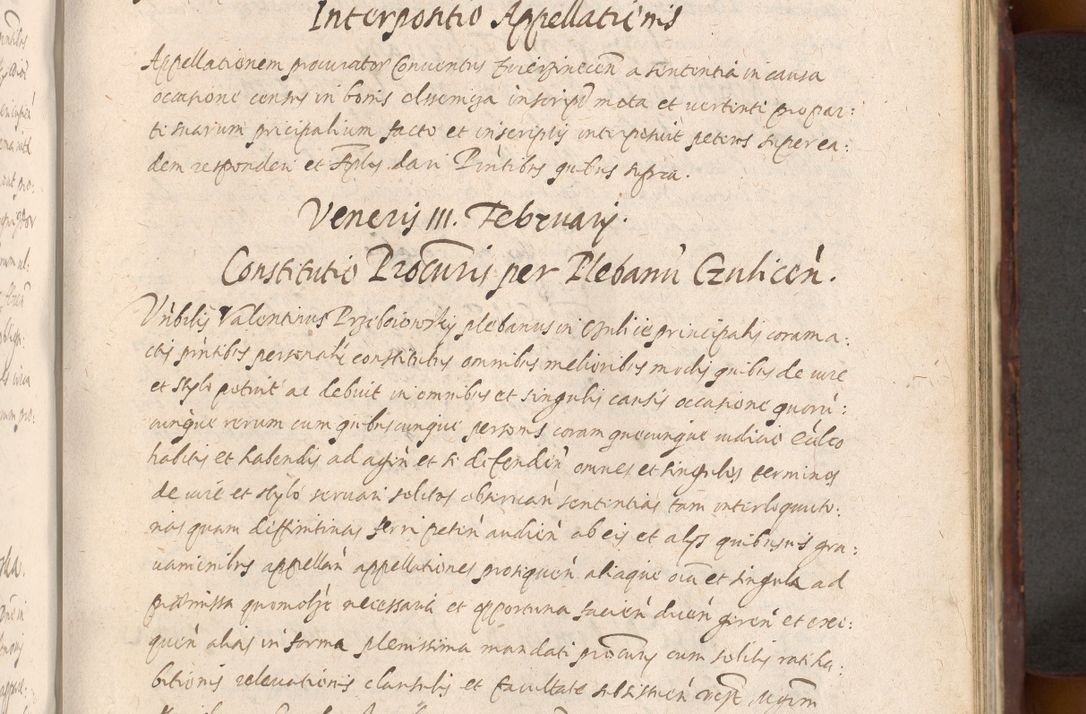 Interpositio Appellationis
Appellationem procurator Conventus Zwierzinecen a sententia in causa
occasione census in bonis inscript mota et vertenti pro par:
ti suarum pricipalium facto et inscriptis interposuit petens super ea:
dem responderi et Aplos dari Pñtibus quibus supra.
Veneris III. Februarij.
Constitutio Procuris per Plebanũ Czulicen.
Vñbilis Valentinus plebanus in Czulice principalis coram a:
ctis pñtibus personalr constitutus omnibus melioribus modis quibus de iure
et stylo potuit ac debuit in omnibus et singulis causis occasione quorũ:
cunque rerum cum quibuscunque personis coram quocunque iudicio
habitis et habendis ad agen et se defenden omnes et singulos terminos
de iure et stylo servari solitos observan sententias tam interloquuto:
rias quam diffinitivas ferri peten audien ab eis et alijs quibusvis gra:
vaminibus appellan appellationes prosequen aliaque oia et singula ad
præmissa quomolibet necessaria et opportuna facien dicen geren et exe:
quen alias in forma plenissima mandati procuris cum solitis ratiha:
bitionis relevationis clausulis et facultate substituen